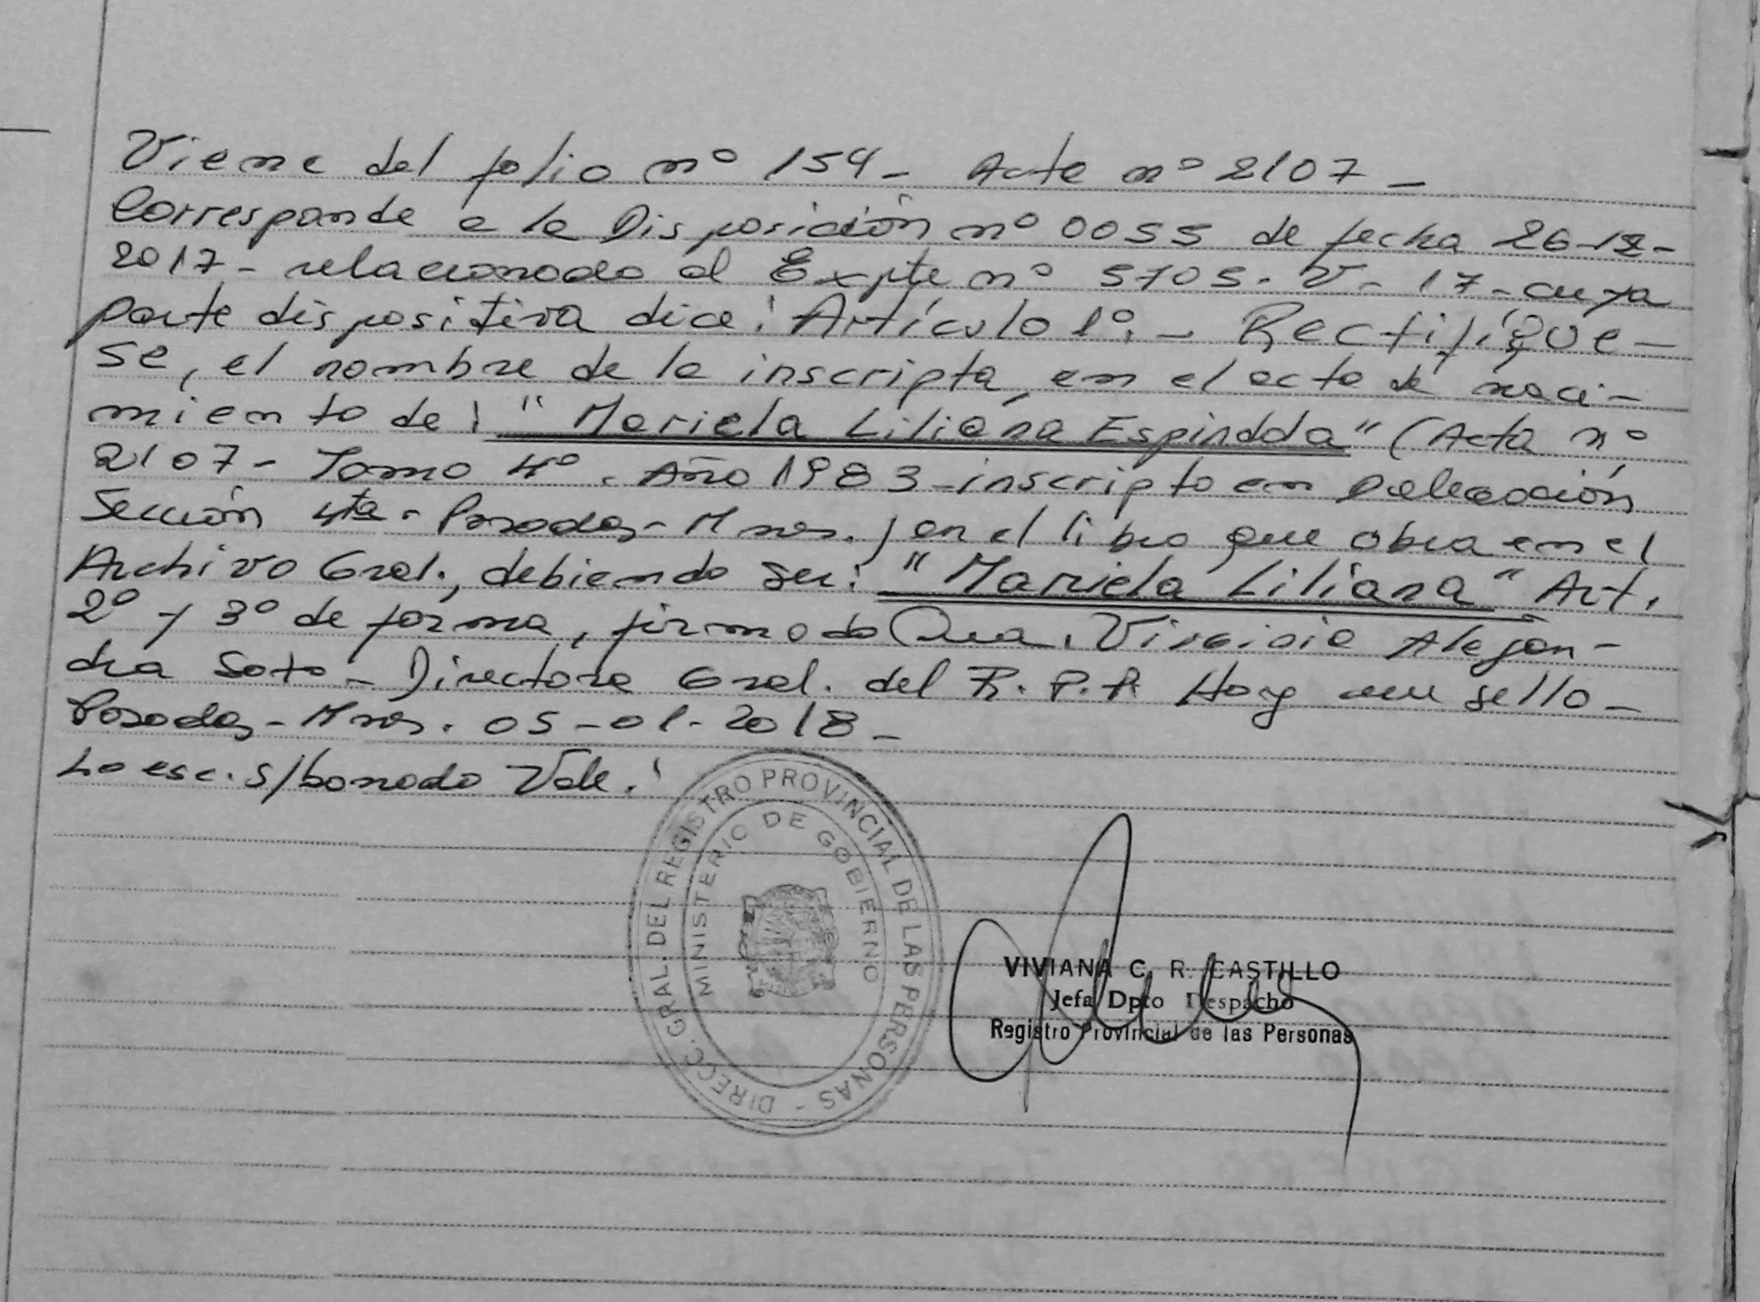 Viene del folio nº 154 - Acta nº 2107 -
Corresponde a la Disposición nº 0055 de fecha 26-12-
2017 - relacionado al Expte nº 5705. V - 17 - cuya
parte dispositiva dice: Artículo 1º: - Rectifíque-
se, el nombre de la inscripta, en el acta de naci-
miento de: "Mariela Liliána Espindola" (Acta nº
2107 - Tomo 4º - Año 1983 - inscripto en Delegación
Sección 4ta - Posadas - Mnes.) en el libro que obra en el
Archivo Gral., debiendo ser: "Mariela Liliana" Art.
2º y 3º de forma, firmado Dra. Virginia Alejan-
dra Soto - Directora Gral. del R. P. P. Hay un sello -
Posadas - Mnes. 05-01-2018 -
Lo esc. s/borrado Vale.
DIRECC. GRAL. DEL REGISTRO PROVINCIAL DE LAS PERSONAS -
MINISTERIO DE GOBIERNO
VIVIANA C. R. CASTILLO
Jefa Dpto Despacho
Registro Provincial de las Personas